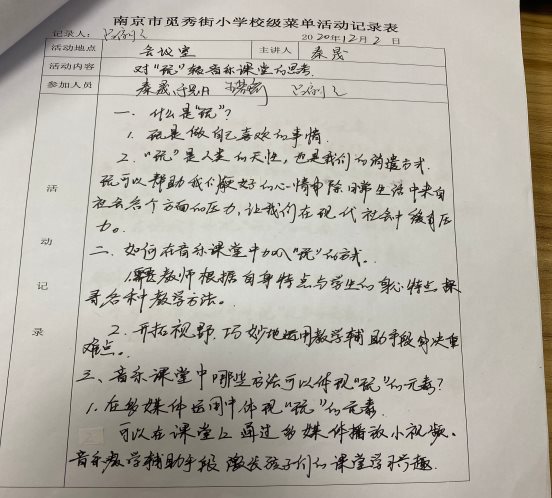 南京市觅秀街小学校级菜单活动记录表
记录人: 2020年12月2日
活动地点 会议室 主讲人 秦晟
活动内容 对"玩"转音乐课堂的思考.
参加人员 秦晟
活动记录
一、什么是"玩"?
1. 玩是做自己喜欢的事情.
2. "玩"是人类的天性,也是我们的消遣方式.
玩可以帮助我们放好的心情解除日常生活中来自
社会各个方面的压力,让我们在现代社会中缓解压
力。
二、如何在音乐课堂中加入"玩"的方式。
1.需要教师根据自身特点与学生的身心特点探
寻各种教学方法。
2. 开拓视野.巧妙地运用教学辅助手段解决重
难点。
三、音乐课堂中哪些方法可以体现"玩"的元素?
1. 在多媒体运用中体现"玩"的元素.
可以在课堂上通过多媒体播放小视频.
音乐教学辅助手段 激发孩子们的课堂学习兴趣.